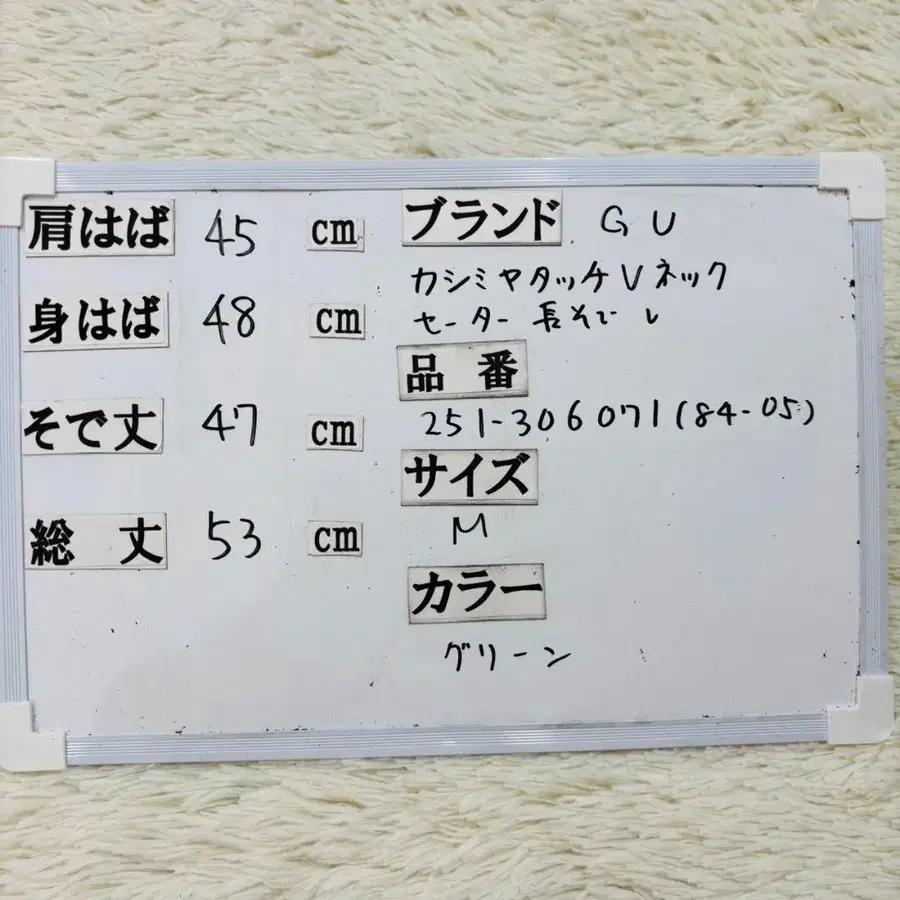 肩はば 45 cm
身はば 48 cm
そで丈 47 cm
総 丈 53 cm
ブランド GU
カシミヤタッチVネック
セーター 長そで
品 番
251-306071(84-05)
サイズ
M
カラー
グリーン